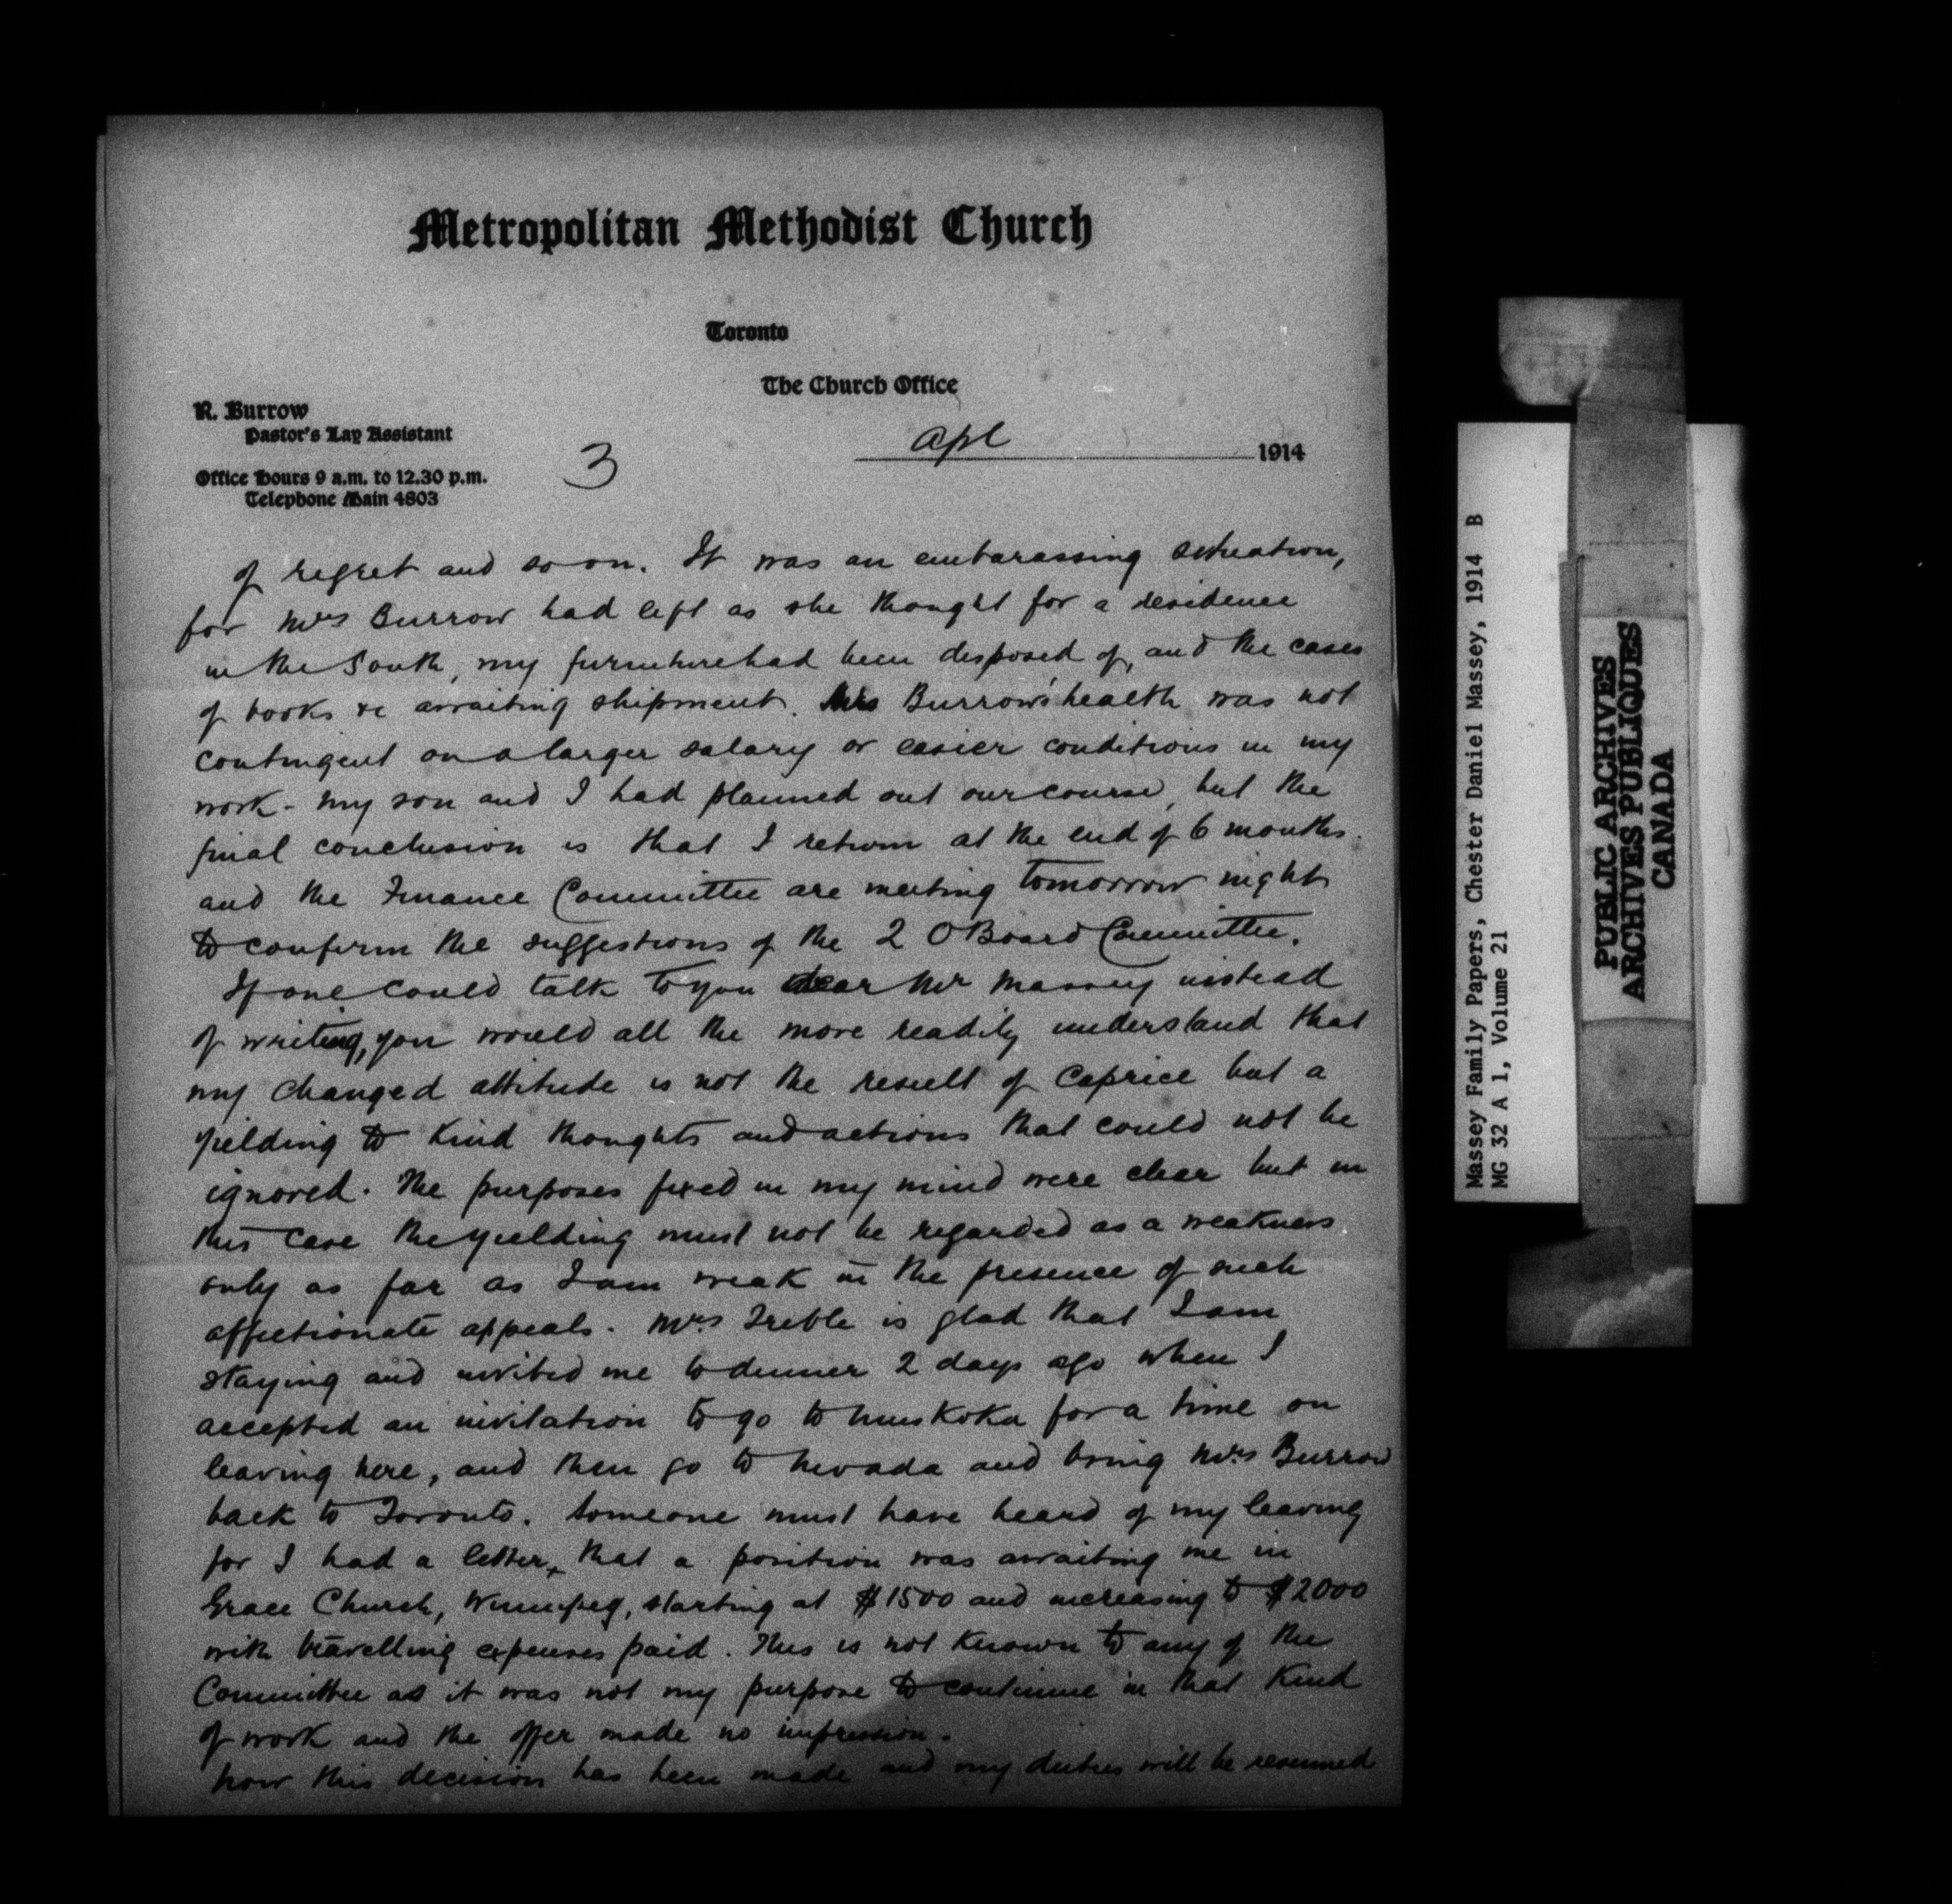 Metropolitan Methodist Church
Toronto
The Church Office
R. Burrow
Pastor's Lay Assistant
Office Hours 9 a.m. to 12.30 p.m.
Telephone Main 4803
3
Apl 1914
of regret and so on. It was an embarassing situation,
for Mrs Burrow had left as she thought for a residence
in the South, my furniture had been disposed of, and the cases
of books &c awaiting shipment. Mrs Burrow's health was not
contingent on a larger salary or easier conditions in my
work - my son and I had planned out our course, but the
final conclusion is that I return at the end of 6 months.
and the Finance Committee are meeting tomorrow night
to confirm the suggestions of the 2 O Board Committee.
If one could talk to you dear Mr Massey instead
of writing, you would all the more readily understand that
my changed attitude is not the result of caprice but a
yielding to kind thoughts and actions that could not be
ignored. The purposes fixed in my mind were clear but in
this case the yielding must not be regarded as a weakness
only as far as I am weak in the presence of such
affectionate appeals. Mrs Treble is glad that I am
staying and invited me to dinner 2 days ago when I
accepted an invitation to go to Muskoka for a time on
leaving here, and then go to Nevada and bring Mrs Burrow
back to Toronto. Someone must have heard of my leaving
for I had a letter, that a position was awaiting me in
Grace Church, Winnipeg, starting at $1500 and increasing to $2000
with travelling expenses paid. This is not known to any of the
Committee as it was not my purpose to continue in that kind
of work and the offer made no impression.
Now this decision has been made and my duties will be resumed
Massey Family Papers, Chester Daniel Massey, 1914 B
MG 32 A 1, Volume 21
PUBLIC ARCHIVES
ARCHIVES PUBLIQUES
CANADA